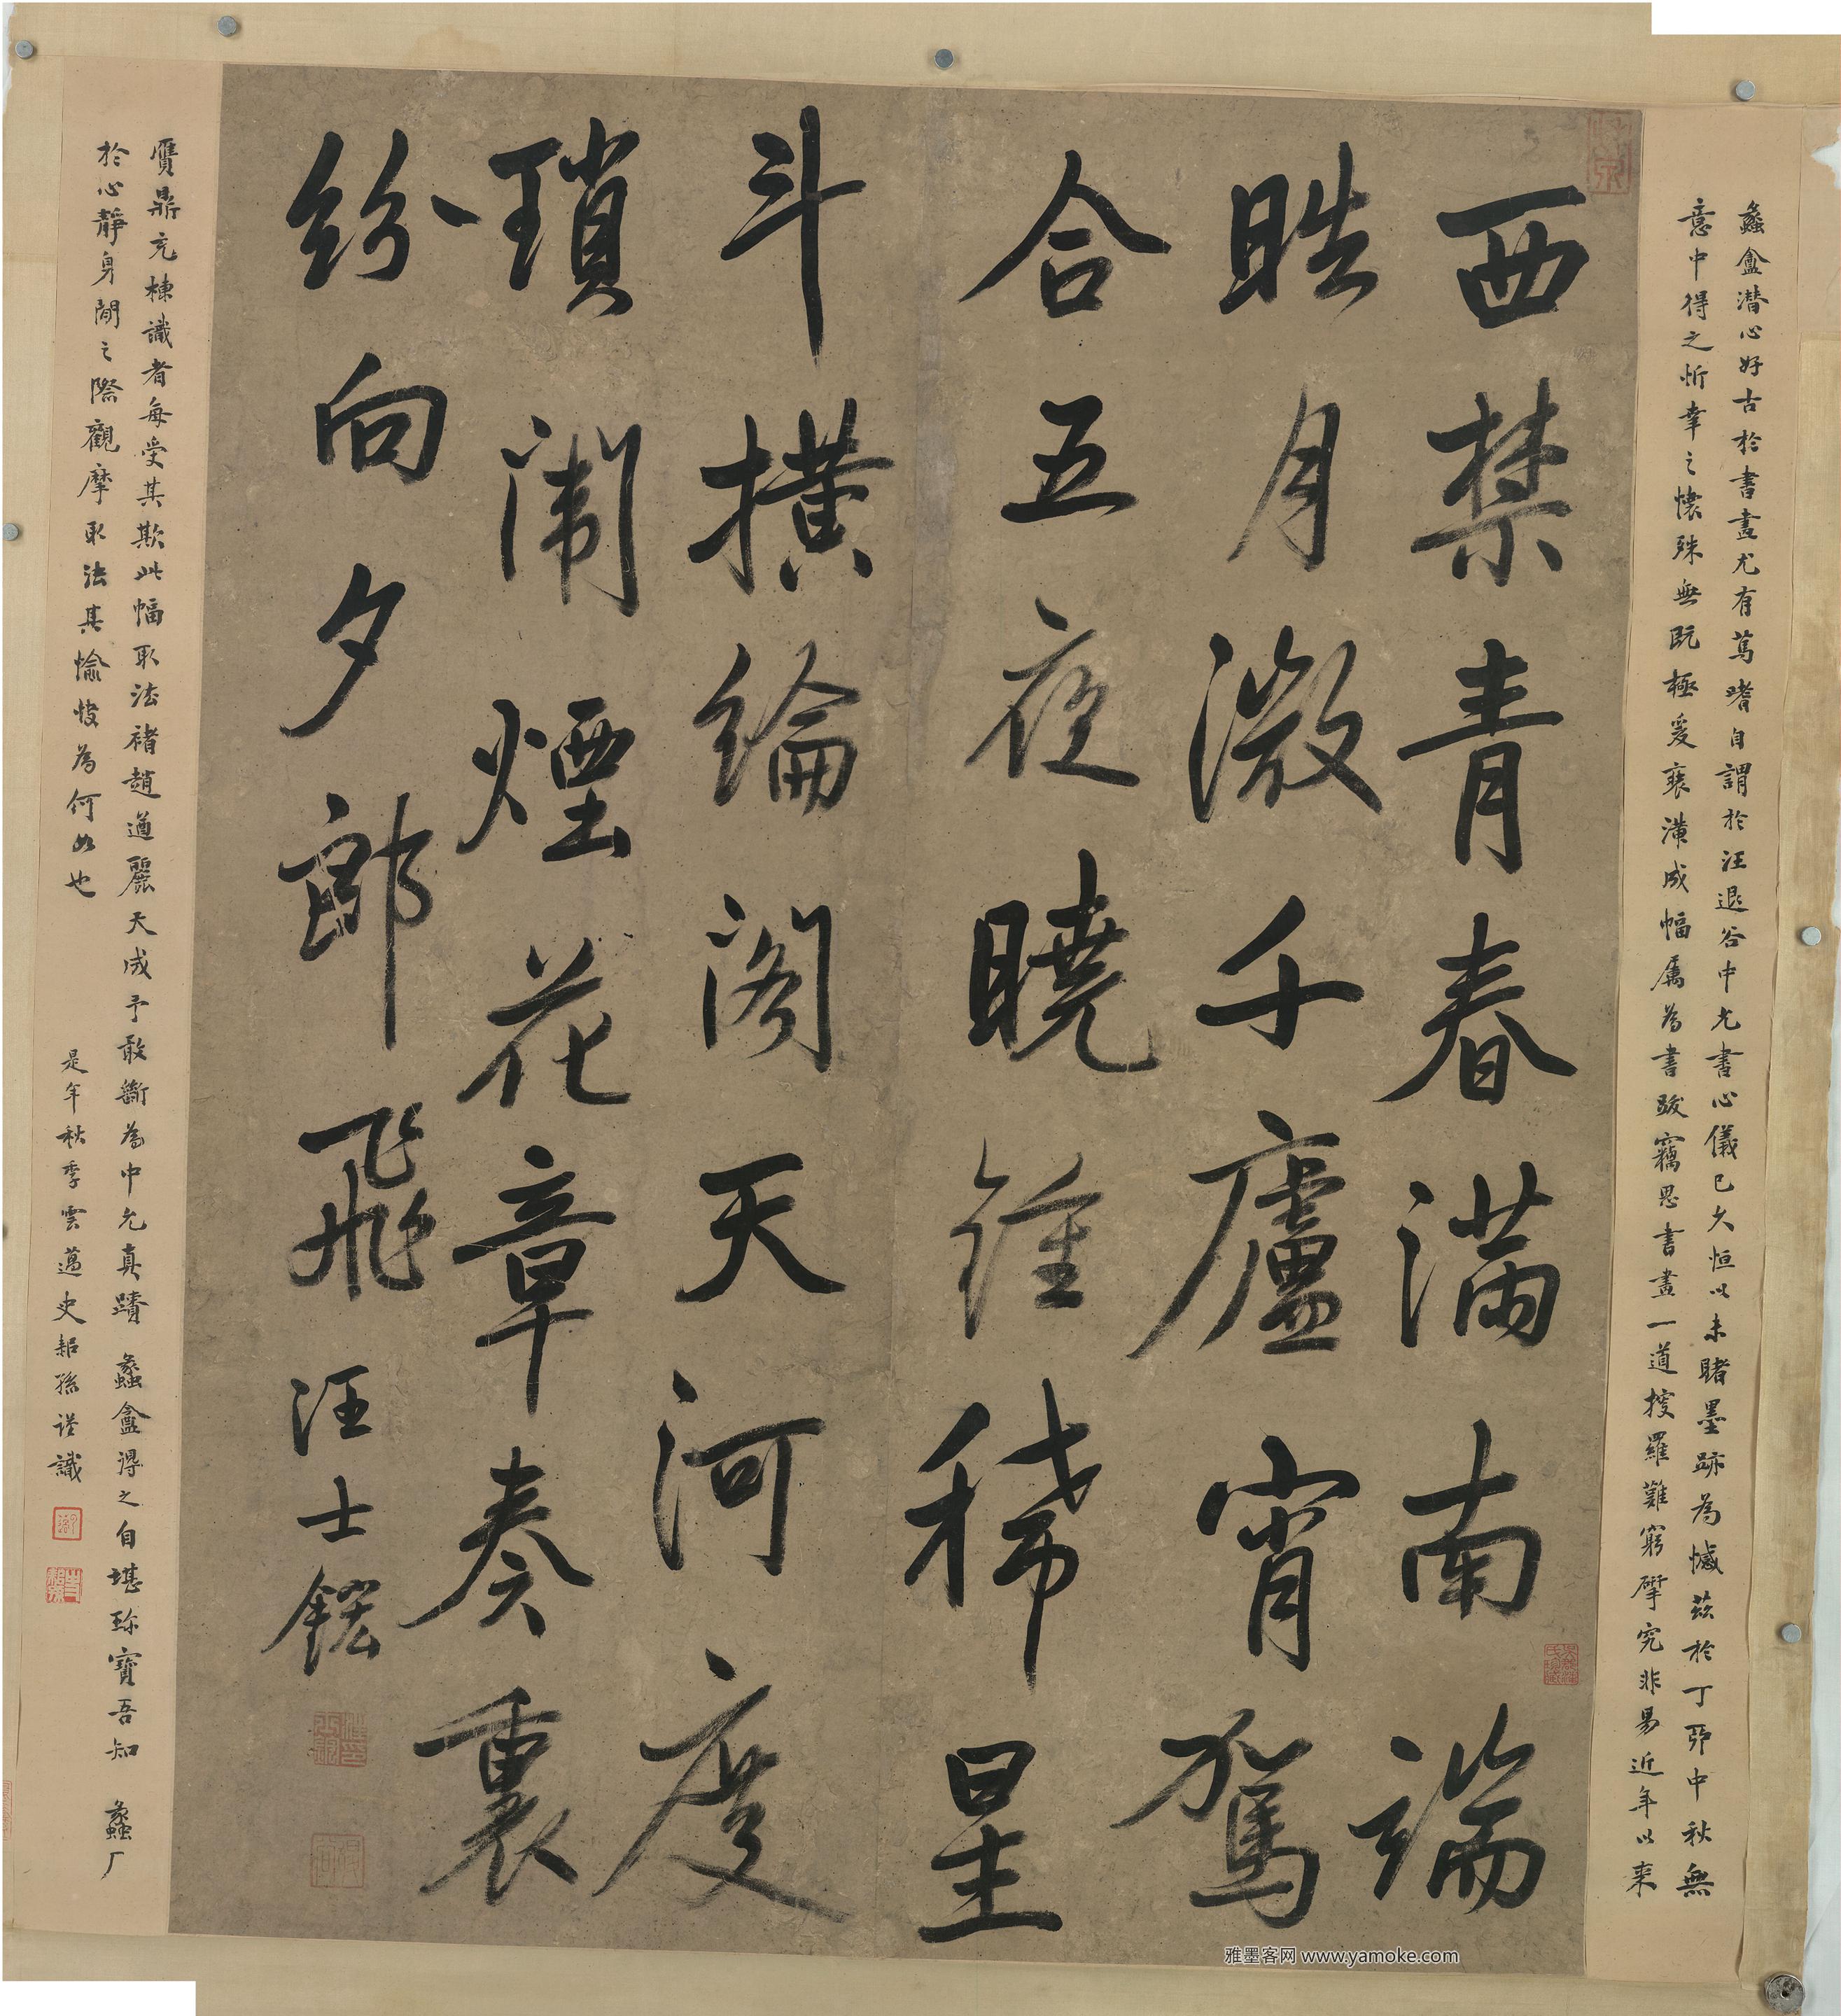 蠡盦潛心好古於書畫尤有篤嗜自謂於汪退谷中允書心儀已久恒以未睹墨跡為憾茲於丁卯中秋無
意中得之忻幸之懷殊無既極爰裝潢成幅屬為書跋竊思書畫一道搜羅難窮擘究非易近年以來
西禁青春滿南端
皓月澂千廬宵駕
合五夜曉鍾稀星
斗橫綸閣天河度
瑣闈煙花章奏裏
紛向夕郎飛汪士鋐
贋鼎充棟識者每受其欺此幅取法褚趙遒麗天成予敢斷為中允真蹟蠡盦得之自堪珍寶吾知蠡厂
於心靜身閒之際觀摩取法其愉快為何如也
是年秋季雲邁史 孫謹識
雅墨客网 www.yamoke.com